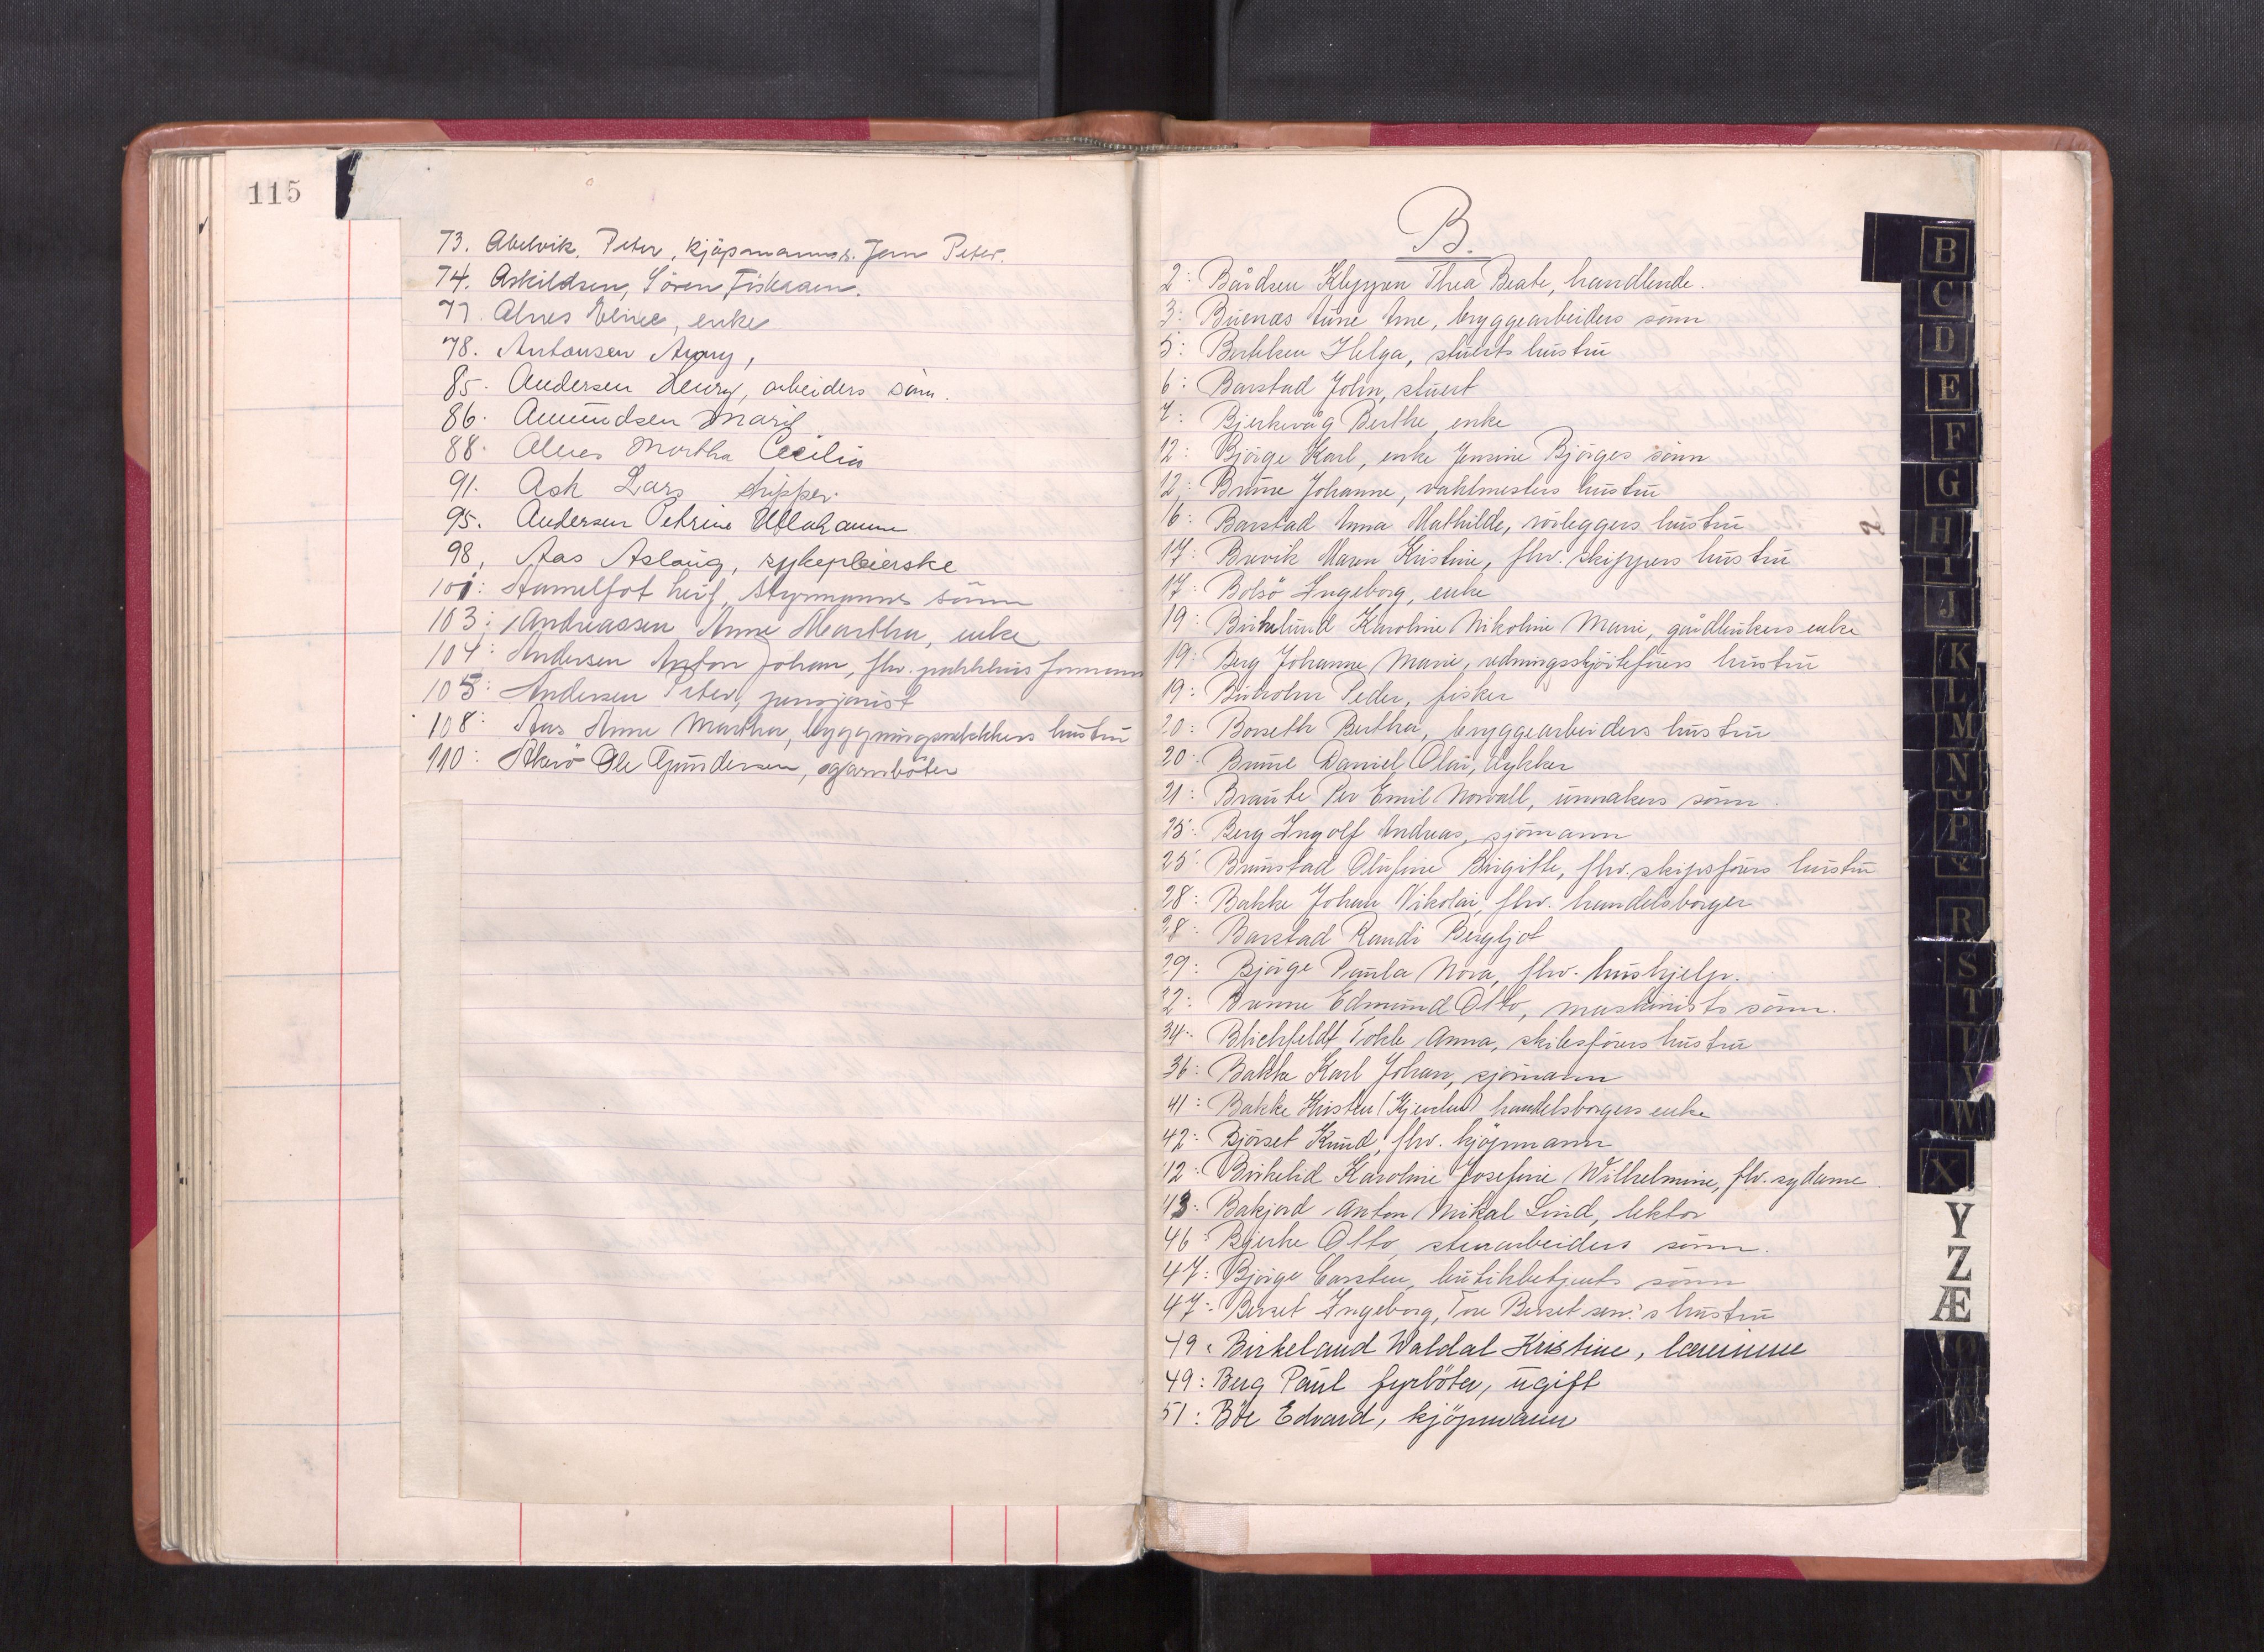 115
73. Abelvik, Peter, kjøpmanns s. Jem Peter.
74. Askildsen, Sören Fiskaaen.
77. Alnes Eline, enke
78. Antonsen Agny,
85. Andersen Henry, arbeiders sönn.
86. Amundsen Marit
88. Alnes Martha Cecilia
91. Ask Lars skipper
95. Andersen Petrine
98, Aas Aslaug, sykepleierske
101: Hamelfot Leif, styrmanns sönn
103: Andreassen Anne Martha, enke
104: Andersen Anton Johan, fhv. pakkhus formann
105: Andersen Peter, pensjonist
108: Aas Anne Martha, byggningssnekkers hustru
110: Akerö Ole Gundersen, garnböter
B.
2: Bårdsen Kleppen Thea Beate, handlende.
3: Buenæs Arne, bryggearbeiders sönn
5: Berkken Helga, stuerts hustru
6: Barstad John, stuert
7: Bjerkevåg Berthe, enke
12: Björge Karl, enke Jensine Björges sönn
12: Brune Johanne, vaktmesters hustru
16: Barstad Anna Mathilde, rörleggers hustru
17: Brevik Maren Kristine, fhv. skippers hustru
17: Bolsö Ingeborg, enke
19: Birkelund Karoline Nikoline Marie, gårdbrukers enke
19: Berg Johanne Marie, redningsskjöiteförers hustru
19: Buholm Peder, fisker
20: Borseth Bertha, bryggearbeiders hustru
20: Brune Daniel Olai, dykker
21: Braute Per Emil Norvall, urmakers sönn.
25: Berg Ingolf Andreas, sjömann
25: Brunstad Olufine Birgitte, fhv. skipsförers hustru
28: Bakke Johan Nikolai, fhv. handelsborger
28: Barstad Randi Bergljot
29: Björge Paula Nora, fhv. hushjelp.
32: Brunne Edmund Otto, maskinists sönn.
34: Blichfeldt Tokle Anna, skibsförers hustru
36: Bakke Karl Johan, sjömann
41: Bakke Kristen (Kjersten) handelsborgers enke
42: Björset Knud, fhv. kjöpmann
42: Birkelid Karoline Josefine Wilhelmine, fhv. sydame.
43: Bakjord Anton Mikal Lind, lektor
46: Bjerke Otto, stenarbeiders sönn.
47: Björge Carsten, butikkbetjents sönn
47: Berset Ingeborg, Tore Berset sen.'s hustru
49. Birkeland Waldal Kristine, lærerinne
49: Berg Paul fyrböter, ugift
51: Böe Edvard, kjöpmann
B
C
D
E
F
G
H
I
J
K
L
M
N
P
R
S
T
U
V
W
X
Y
Z
Æ
Ø